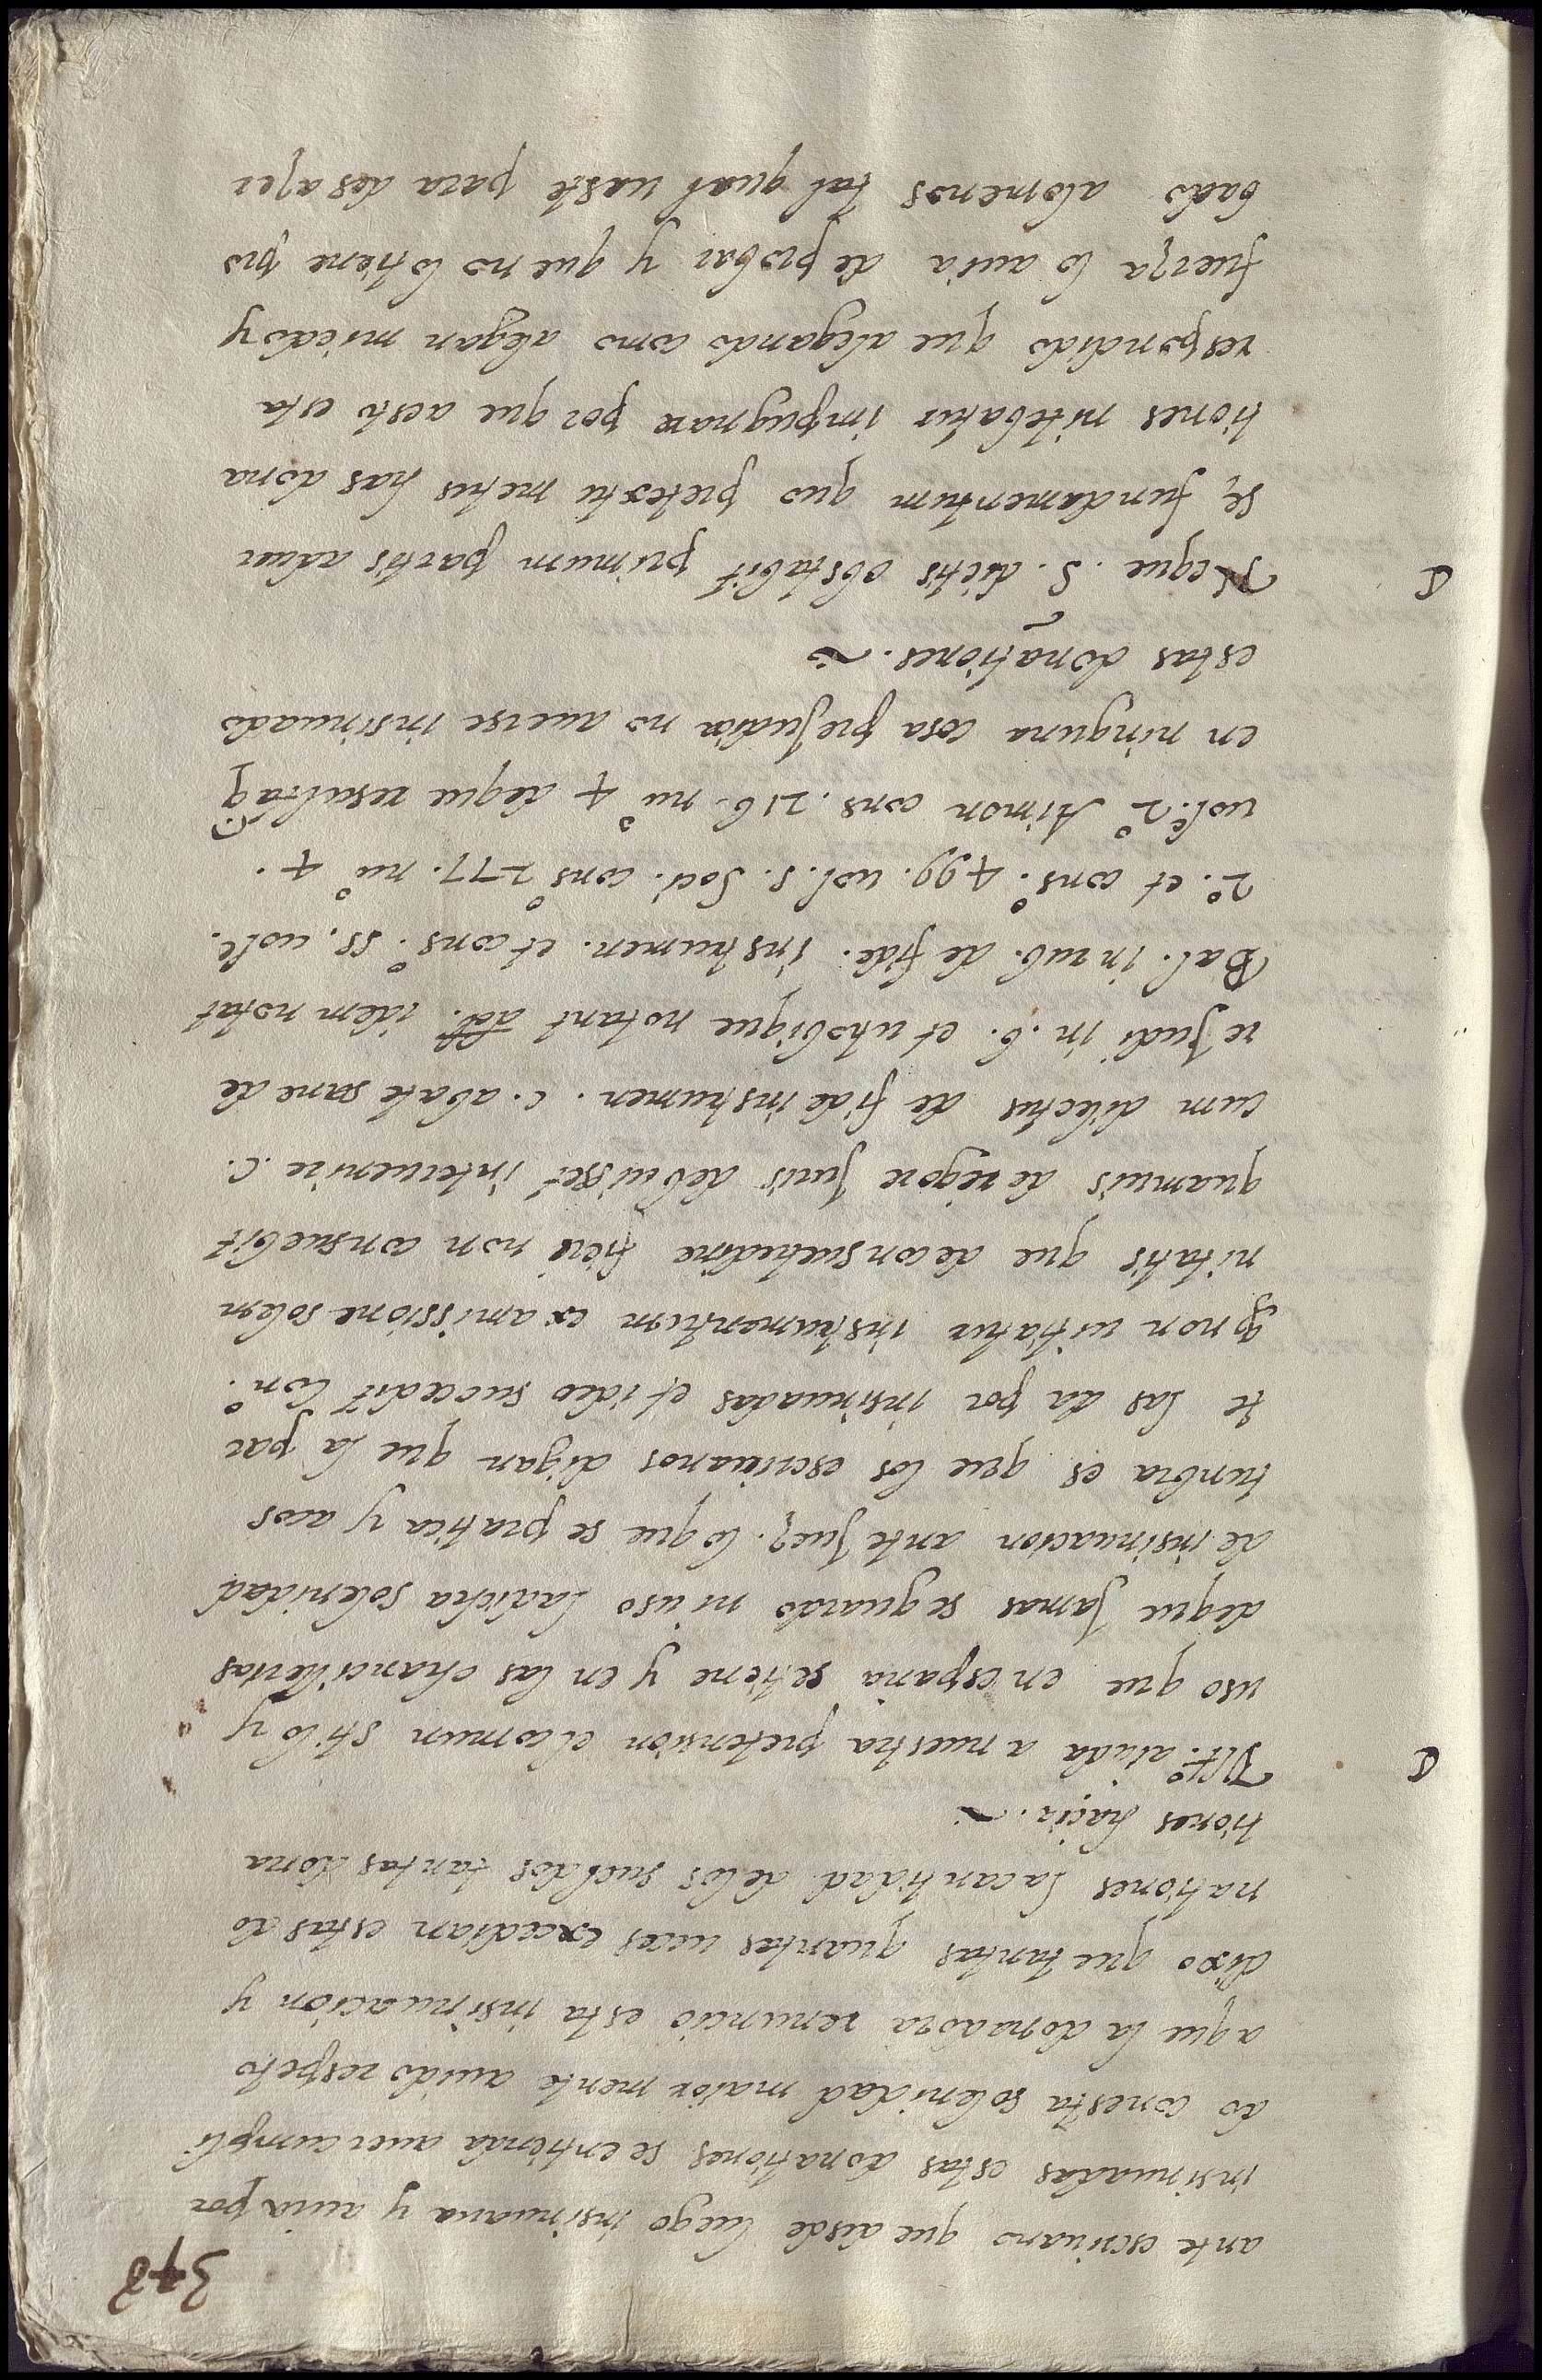 378
ante escriuano que desde luego insinuaua y auia por
insinuadas estas donationes se entienda auer cumpli
do conesta solenidad maiormente auido respeto
aque la donadora renunció esta insinuacion y
dixo que tantas quantas ueces excedian estas do
nationes lacantidad delos sueldos tantas dona
tiones haçia.
C Vltº. aiuda a nuestra pretension elcomun stilo y
uso que en espana setiene y en las chancillerias
deque Jamas seguardo ni uso ladicha solenidad
de insinuacion ante Juez. loque se pratica y acos
tunbra es que los escriuanos digan que la par
te las da por insinuadas et ideo succedit Conº.
q non uitiatur instrumentum ex amissione solem
nitatis que deconsuetudine fieri non consuebit
quamuis derigore Juris debuisset interuenire c.
cum dilectus de fide instrumen. c. abate sane de
re Judi in. 6. et utrobique notant dd. idem notat
Bal. in rub. de fide. instrumen. et consº. 55. uole.
2º. et consº. 499. uol. 5. Soci. consº 277. nuº 4.
uole. 2º Aimon cons. 216. nuº 4 deque resulta q
en ninguna cosa prejudica no auerse insinuado
estas donationes.
C Neque. S. dictis obstabit primum partis aduer
se fundamentum quo pretextu metus has dona
tiones nitebatur impugnare por que aesto esta
respondido que alegando como alegan miedo y
fuerça lo auia de probar y que no lo tiene pro
bado alomenos tal qual ueste para desazer